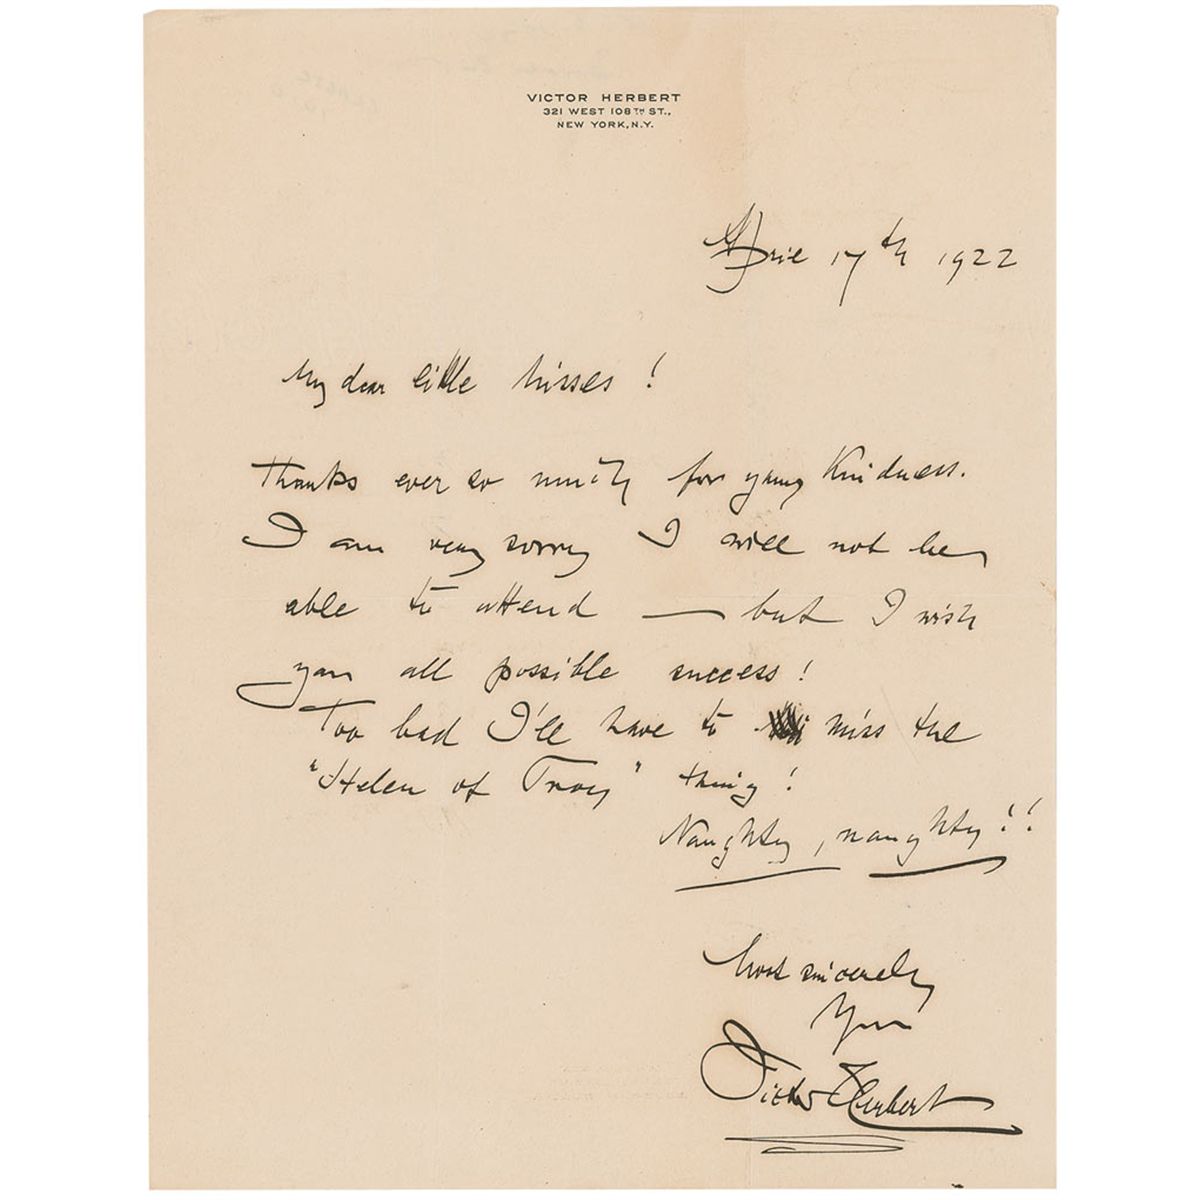 VICTOR HERBERT
321 WEST 108TH ST.,
NEW YORK, N.Y.
April 17th 1922
My dear little Misses!
Thanks ever so much for your Kindness.
I am very sorry I will not be
able to attend — but I wish
you all possible success!
Too bad I'll have to miss the
"Helen of Troy" thing!
Naughty, naughty!!
Most sincerely
Your
Victor Herbert